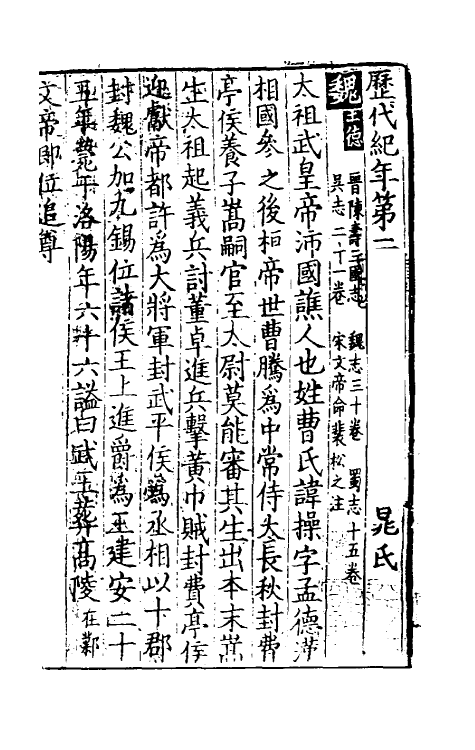 歷代紀年第二　晁氏
魏 土德 晉陳壽三國志 魏志三十卷 蜀志十五卷
吳志二十一卷 宋文帝命裴松之注
太祖武皇帝沛國譙人也姓曹氏諱操字孟德漢
相國參之後桓帝世曹騰爲中常侍大長秋封費
亭侯養子嵩嗣官至太尉莫能審其生出本末嵩
生太祖起義兵討董卓進兵擊黃巾賊封費亭侯
迎獻帝都許爲大將軍封武平侯爲丞相以十郡
封魏公加九錫位諸侯王上進爵爲王建安二十
五年薨于洛陽年六十六謚曰武王葬高陵 在鄴
文帝即位追尊